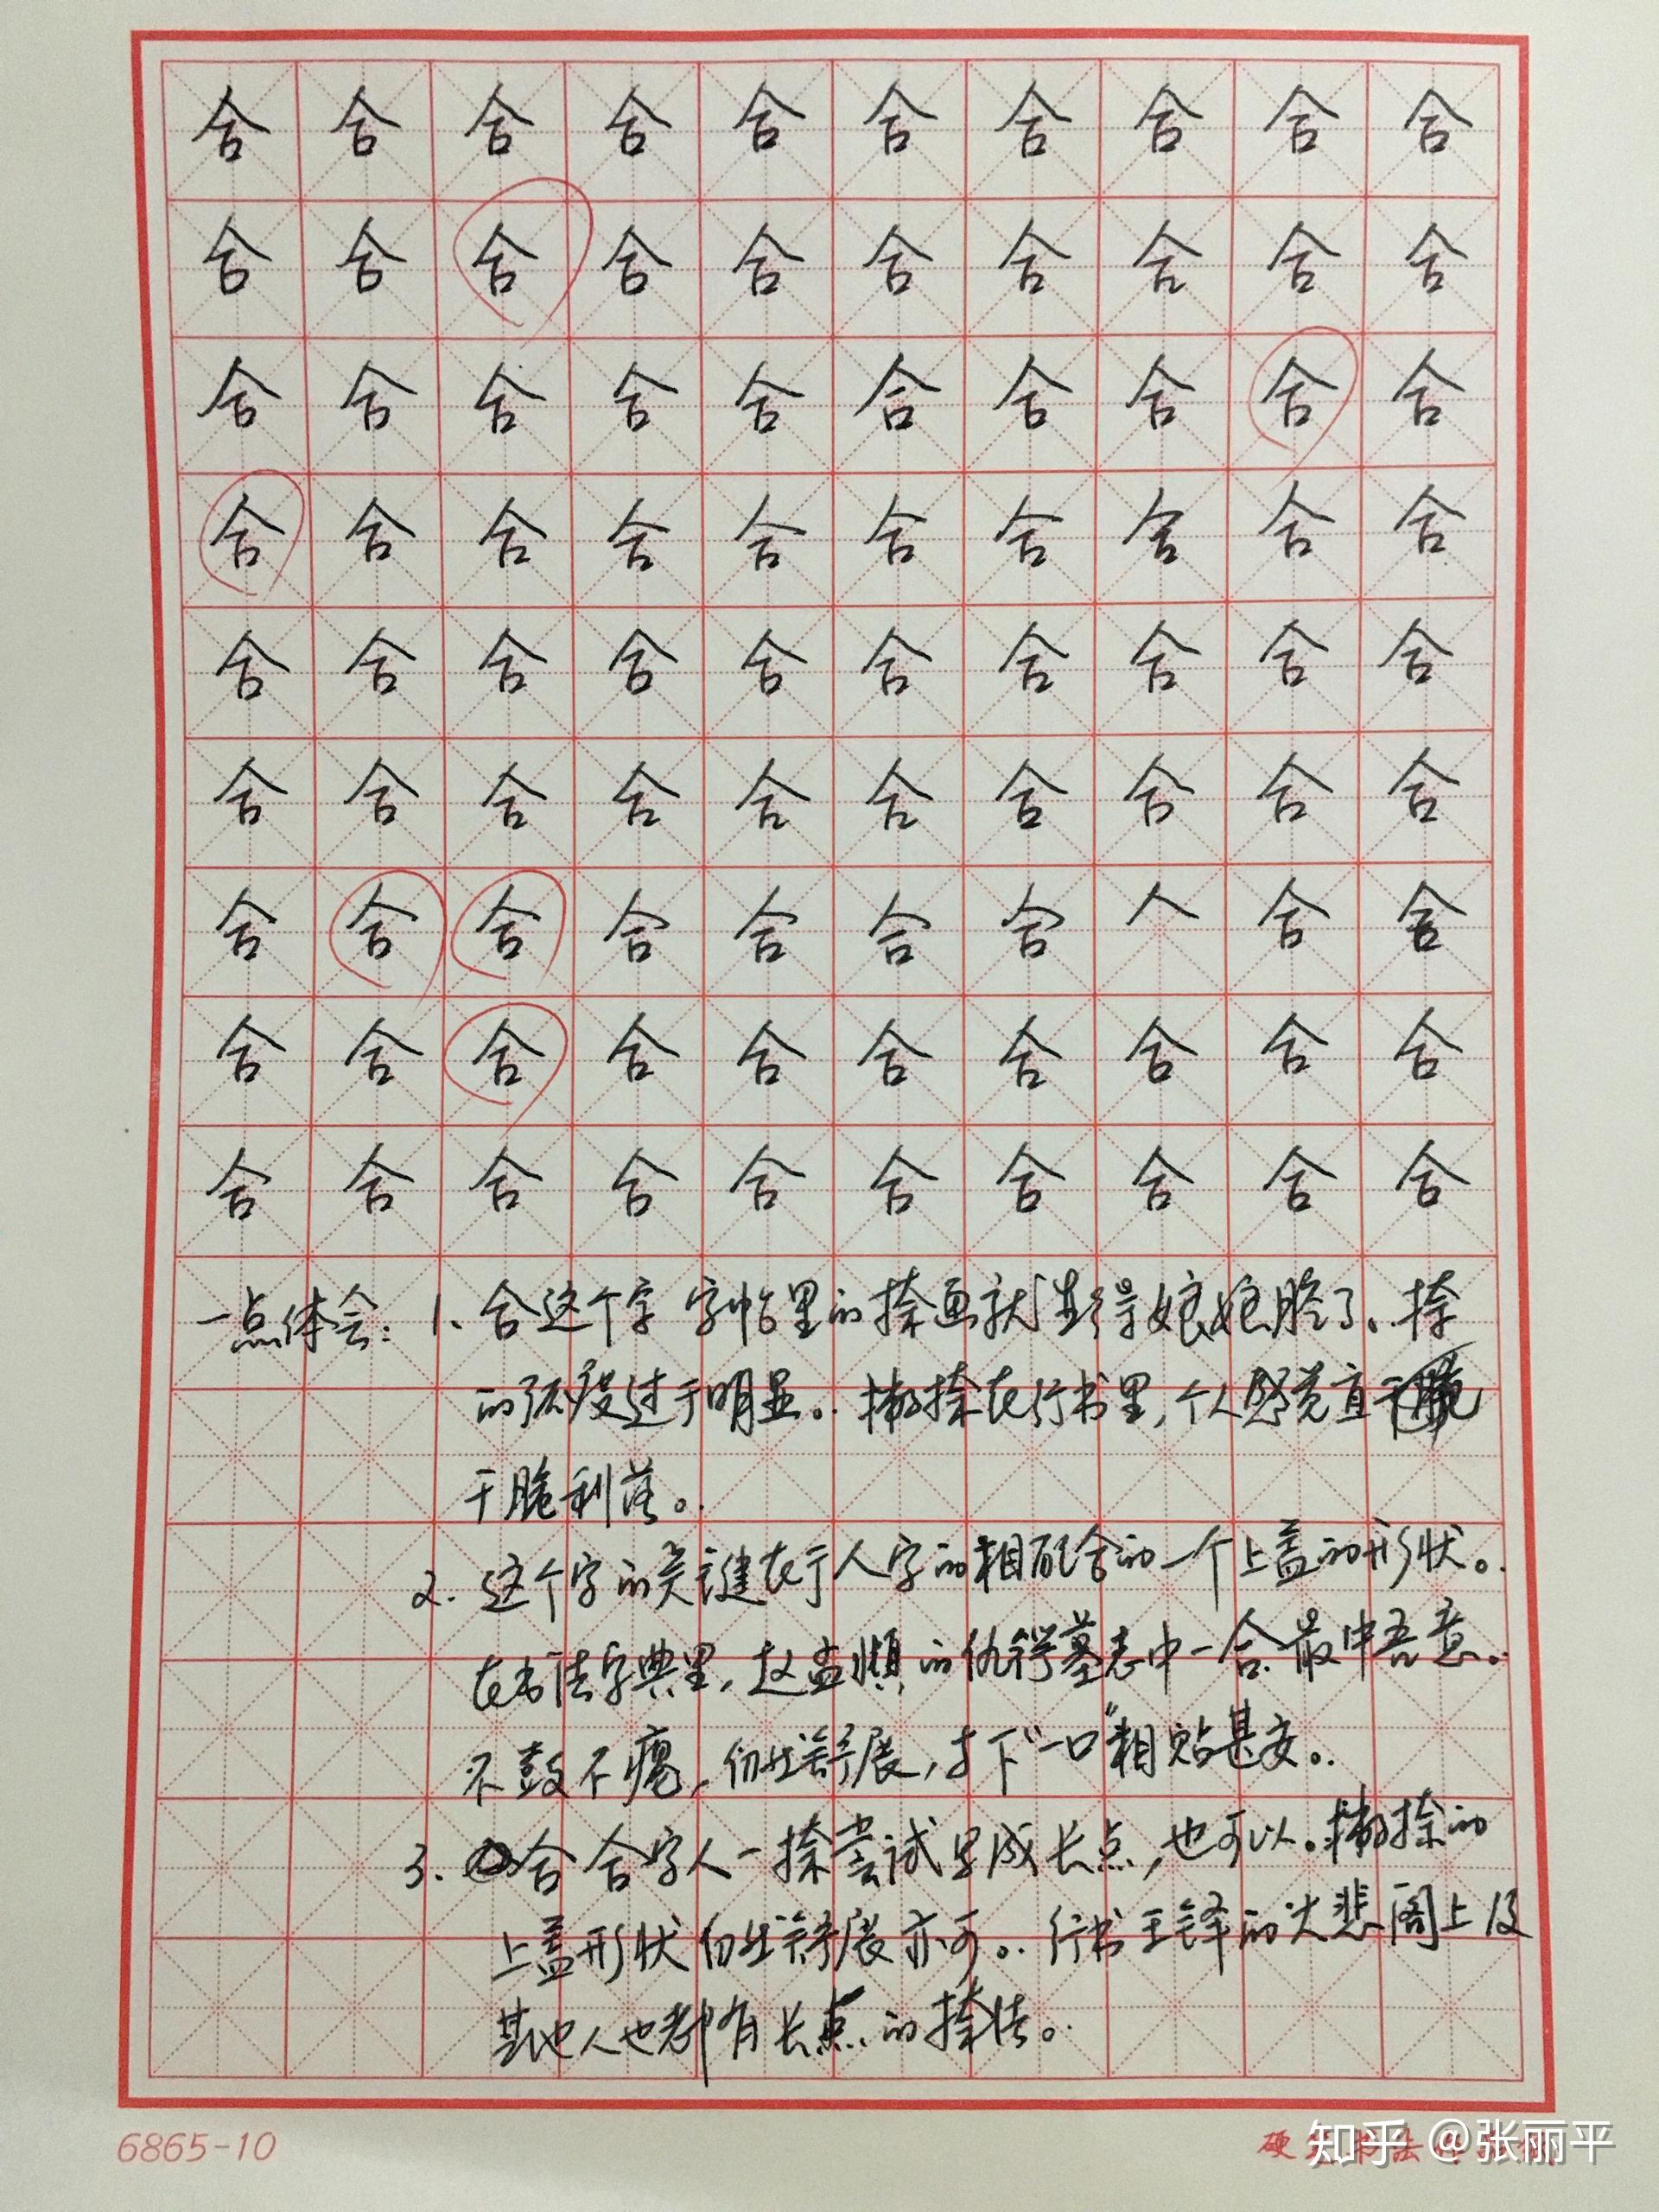 合 合 合 合 合 合 合 合 合 合
合 合 合 合 合 合 合 合 合 合
合 合 合 合 合 合 合 合 合 合
合 合 合 合 合 合 合 合 合 合
合 合 合 合 合 合 合 合 合 合
合 合 合 合 合 合 合 合 合 合
合 合 合 合 合 合 合 人 合 合
合 合 合 合 合 合 合 合 合 合
合 合 合 合 合 合 合 合 合 合
一点体会：1、合这个字 字帖里的捺画就显得娘娘腔了。捺
的弧度过于明显。撇捺在行书里，个人感觉直
干脆利落。
2. 这个字的关键在于人字的相配合的一个上盖的形状。
在书法字典里，赵孟頫的仇锷墓志中一合最中吾意。
不鼓不瘪，伸展，与下"一口"相贴甚安。
3. 合 合字人一捺尝试写成长点，也可以。撇捺的
上盖形状舒展亦可。行书王铎的大悲阁上及
其他人也都有长点的捺法。
6865-10
知乎 @张丽平